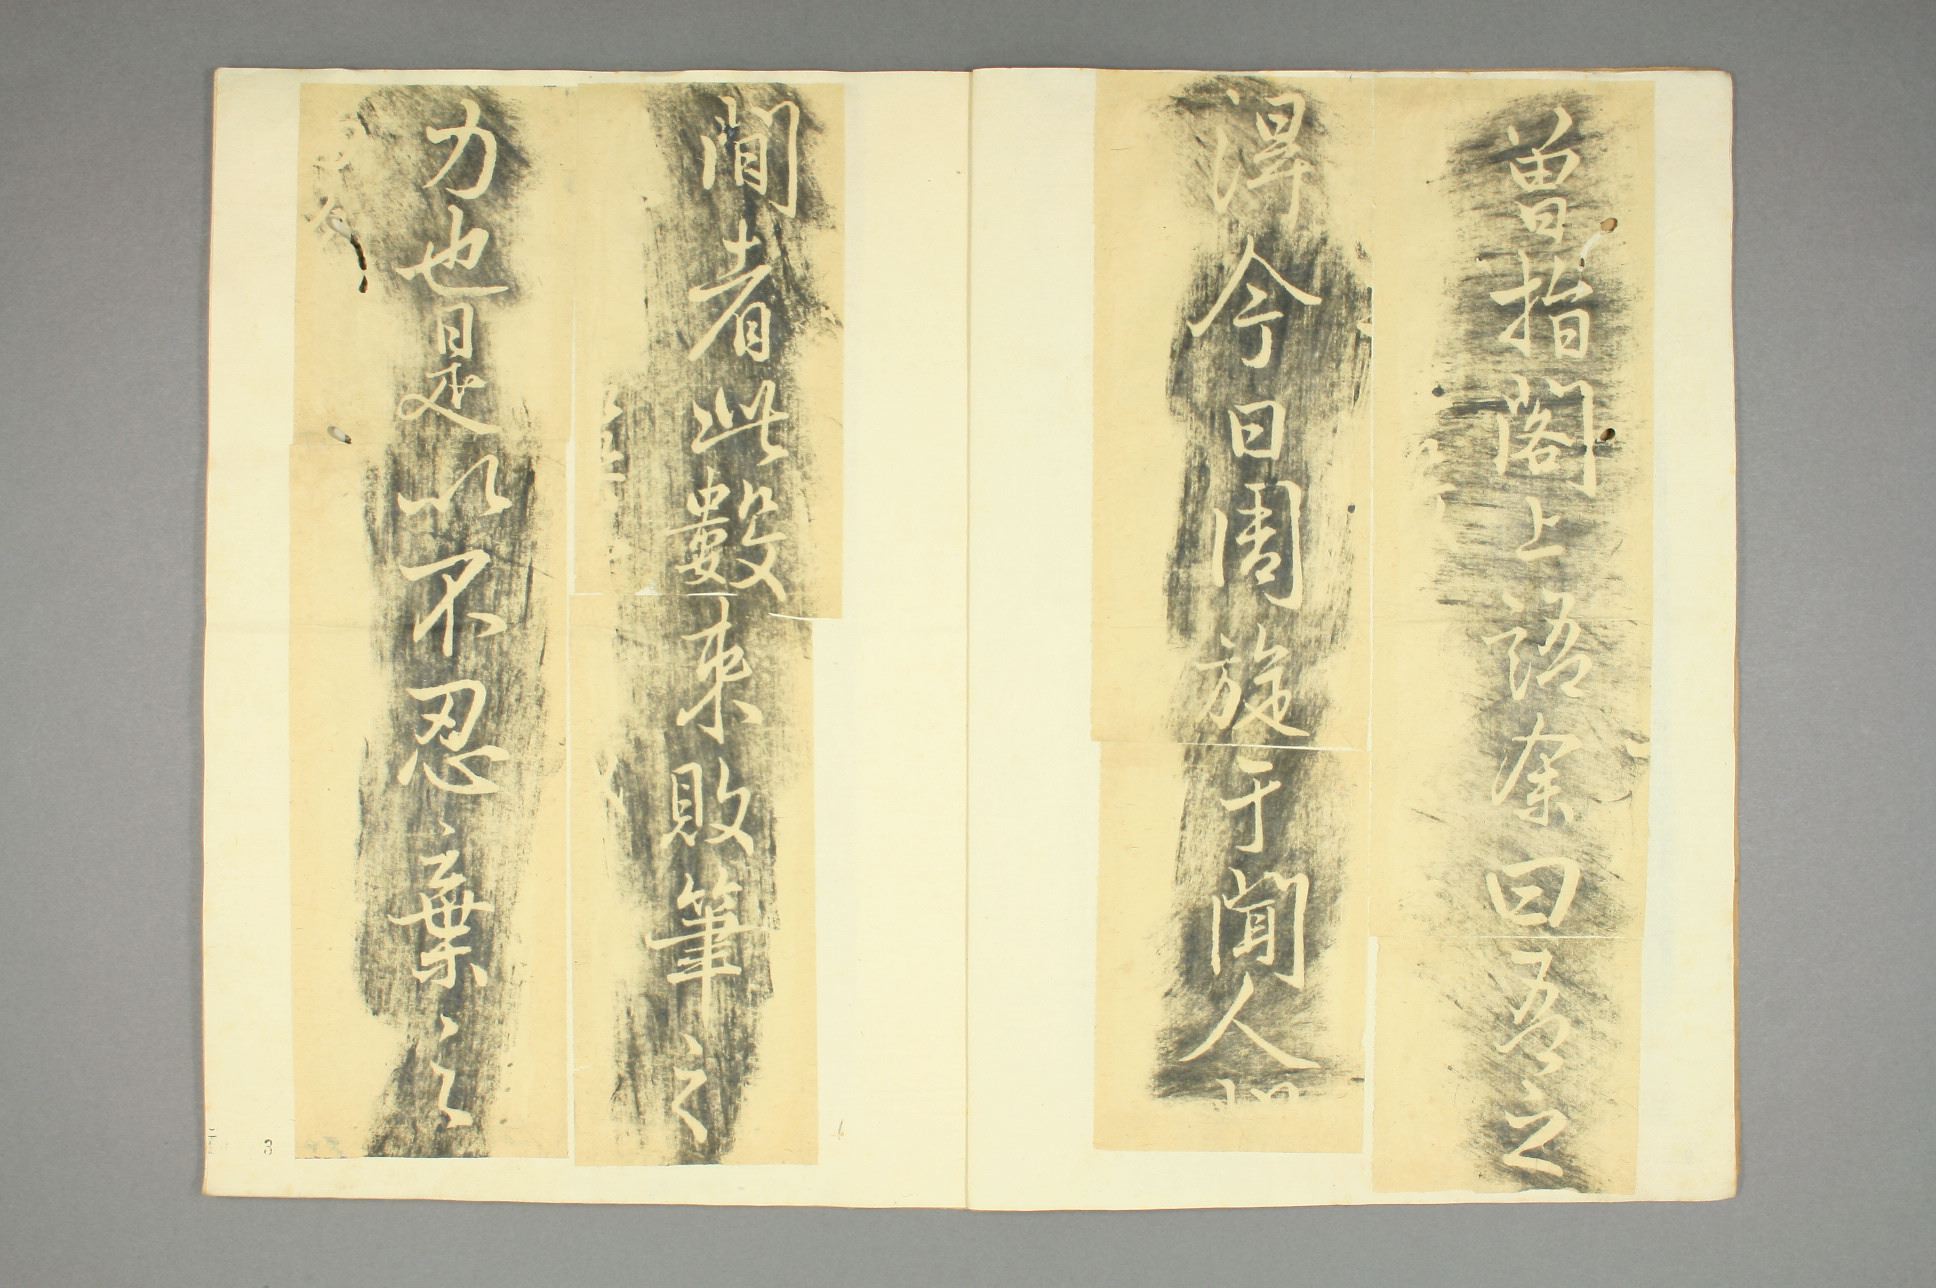 曽指閣上語余曰吾之
得今日周旋于聞人
間者此數束敗筆之
力也是以不忍棄之
3